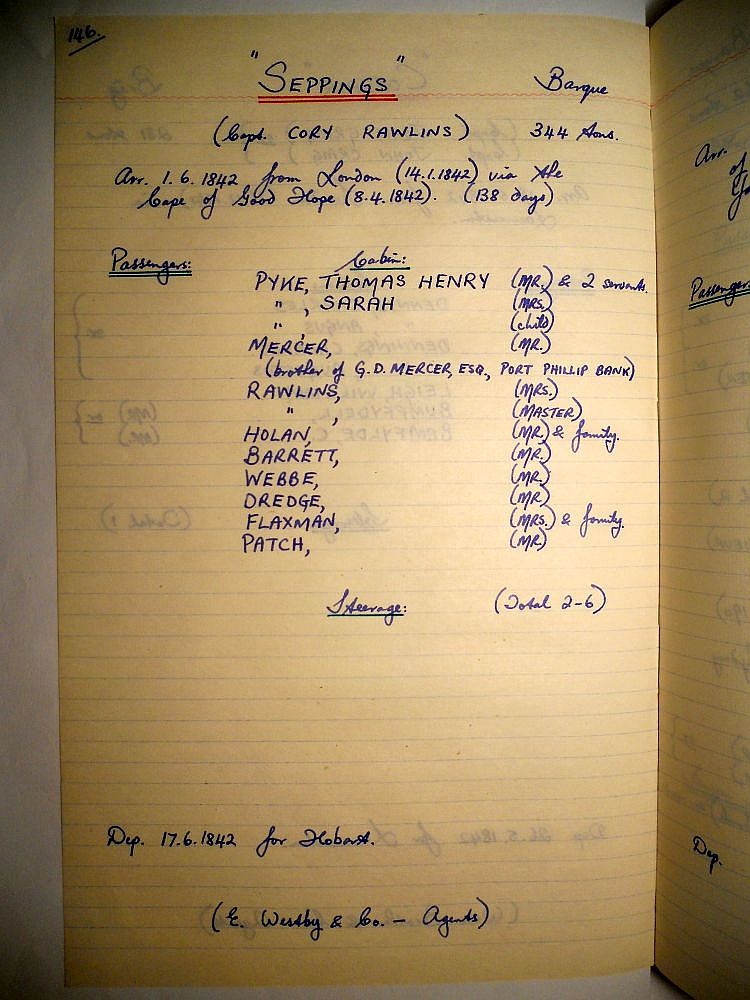 146.
"SEPPINGS" Barque
(Capt. CORY RAWLINS) 344 tons.
Arr. 1.6.1842 from London (14.1.1842) via the
Cape of Good Hope (8.4.1842). (138 days)
Passengers: Cabin:
PYKE, THOMAS HENRY (MR.) & 2 servants.
" , SARAH (MRS.)
" , (child)
MERCER, (MR.)
(brother of G.D. MERCER, ESQ., PORT PHILLIP BANK)
RAWLINS, (MRS.)
" , (MASTER)
HOLAN, (MR.) & family.
BARRETT, (MR.)
WEBBE, (MR.)
DREDGE, (MR.)
FLAXMAN, (MRS.) & family.
PATCH, (MR.)
Steerage: (Total 2-6)
Dep. 17.6.1842 for Hobart.
(E. Westby & Co. – Agents)
Arr.
of
Passengers
Dep.